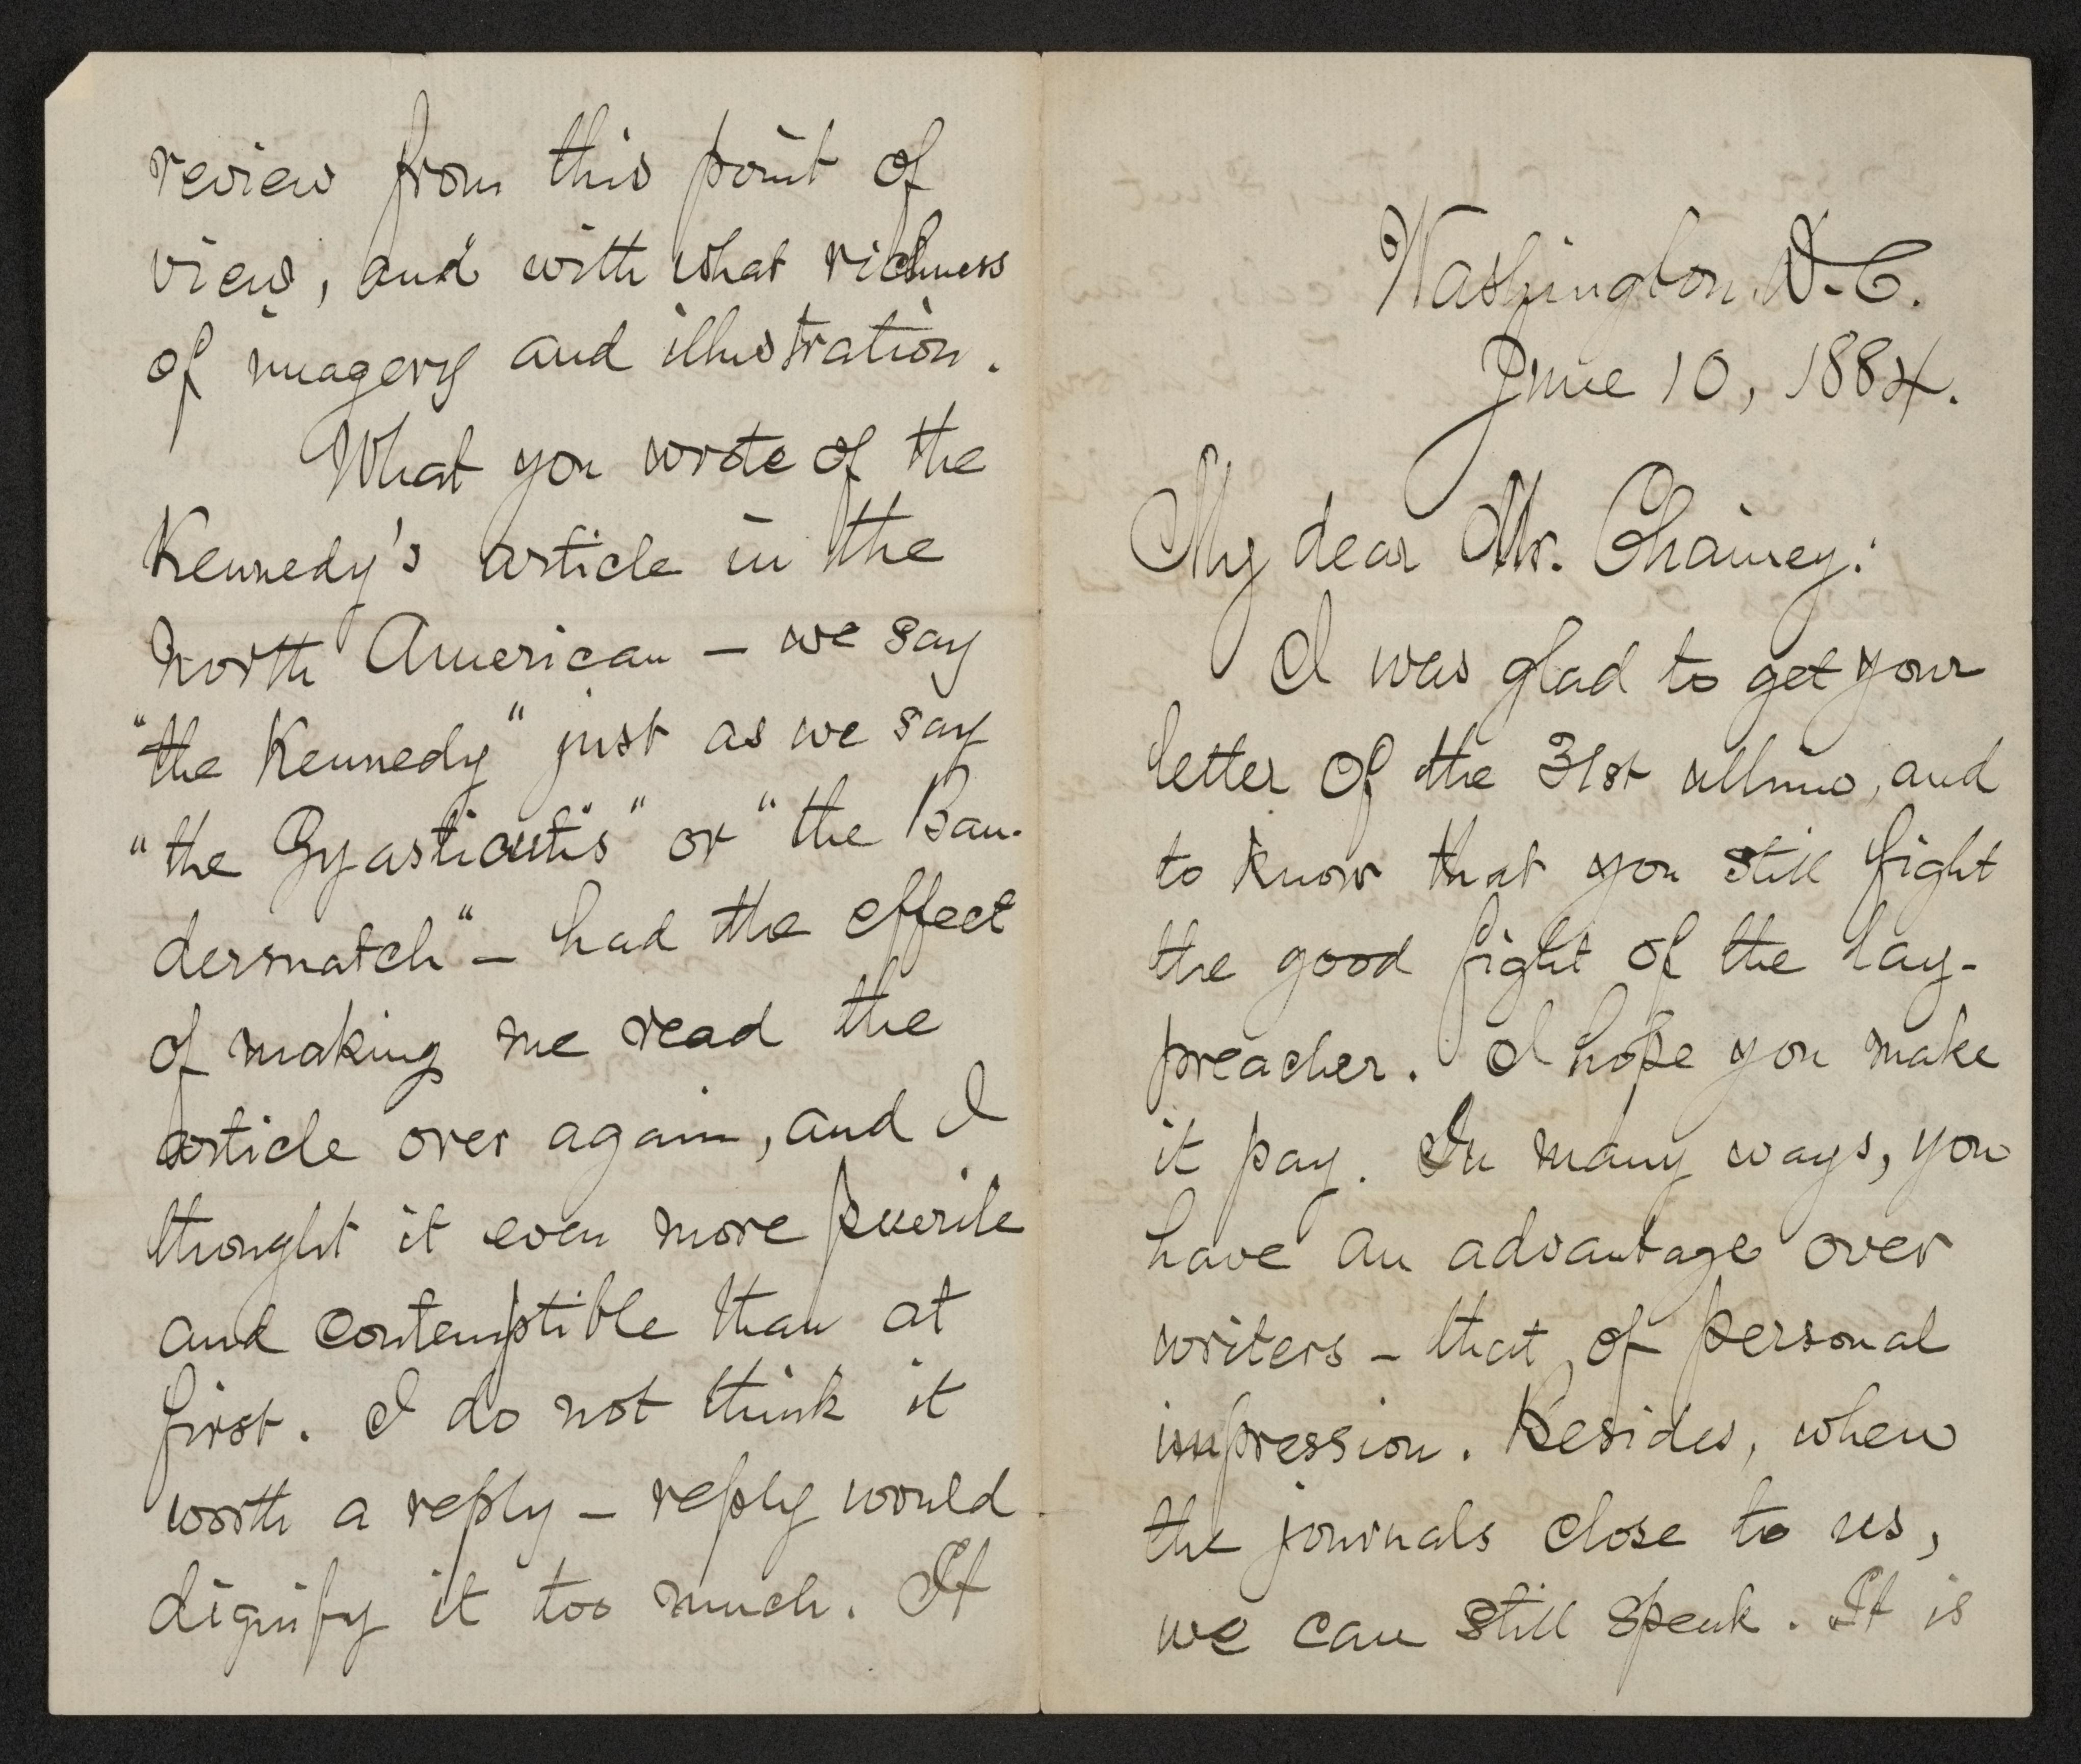 Washington, D.C.
June 10, 1884.
My dear Mr. Chainey:
I was glad to get your
letter of the 31st ultimo, and
to know that you still fight
the good fight of the lay-
preacher. I hope you make
it pay. In many ways, you
have an advantage over
writers – that of personal
impression. Besides, when
the journals close to us,
we can still speak. It is
review from this point of
view, and with what richness
of imagery and illustration.
What you wrote of the
Kennedy's article in the
North American – we say
"the Kennedy" just as we say
"the Gyasticutis" or "the Ban-
dersnatch" – had the effect
of making me read the
article over again, and I
thought it even more puerile
and contemptible than at
first. I do not think it
worth a reply – reply would
dignify it too much. It